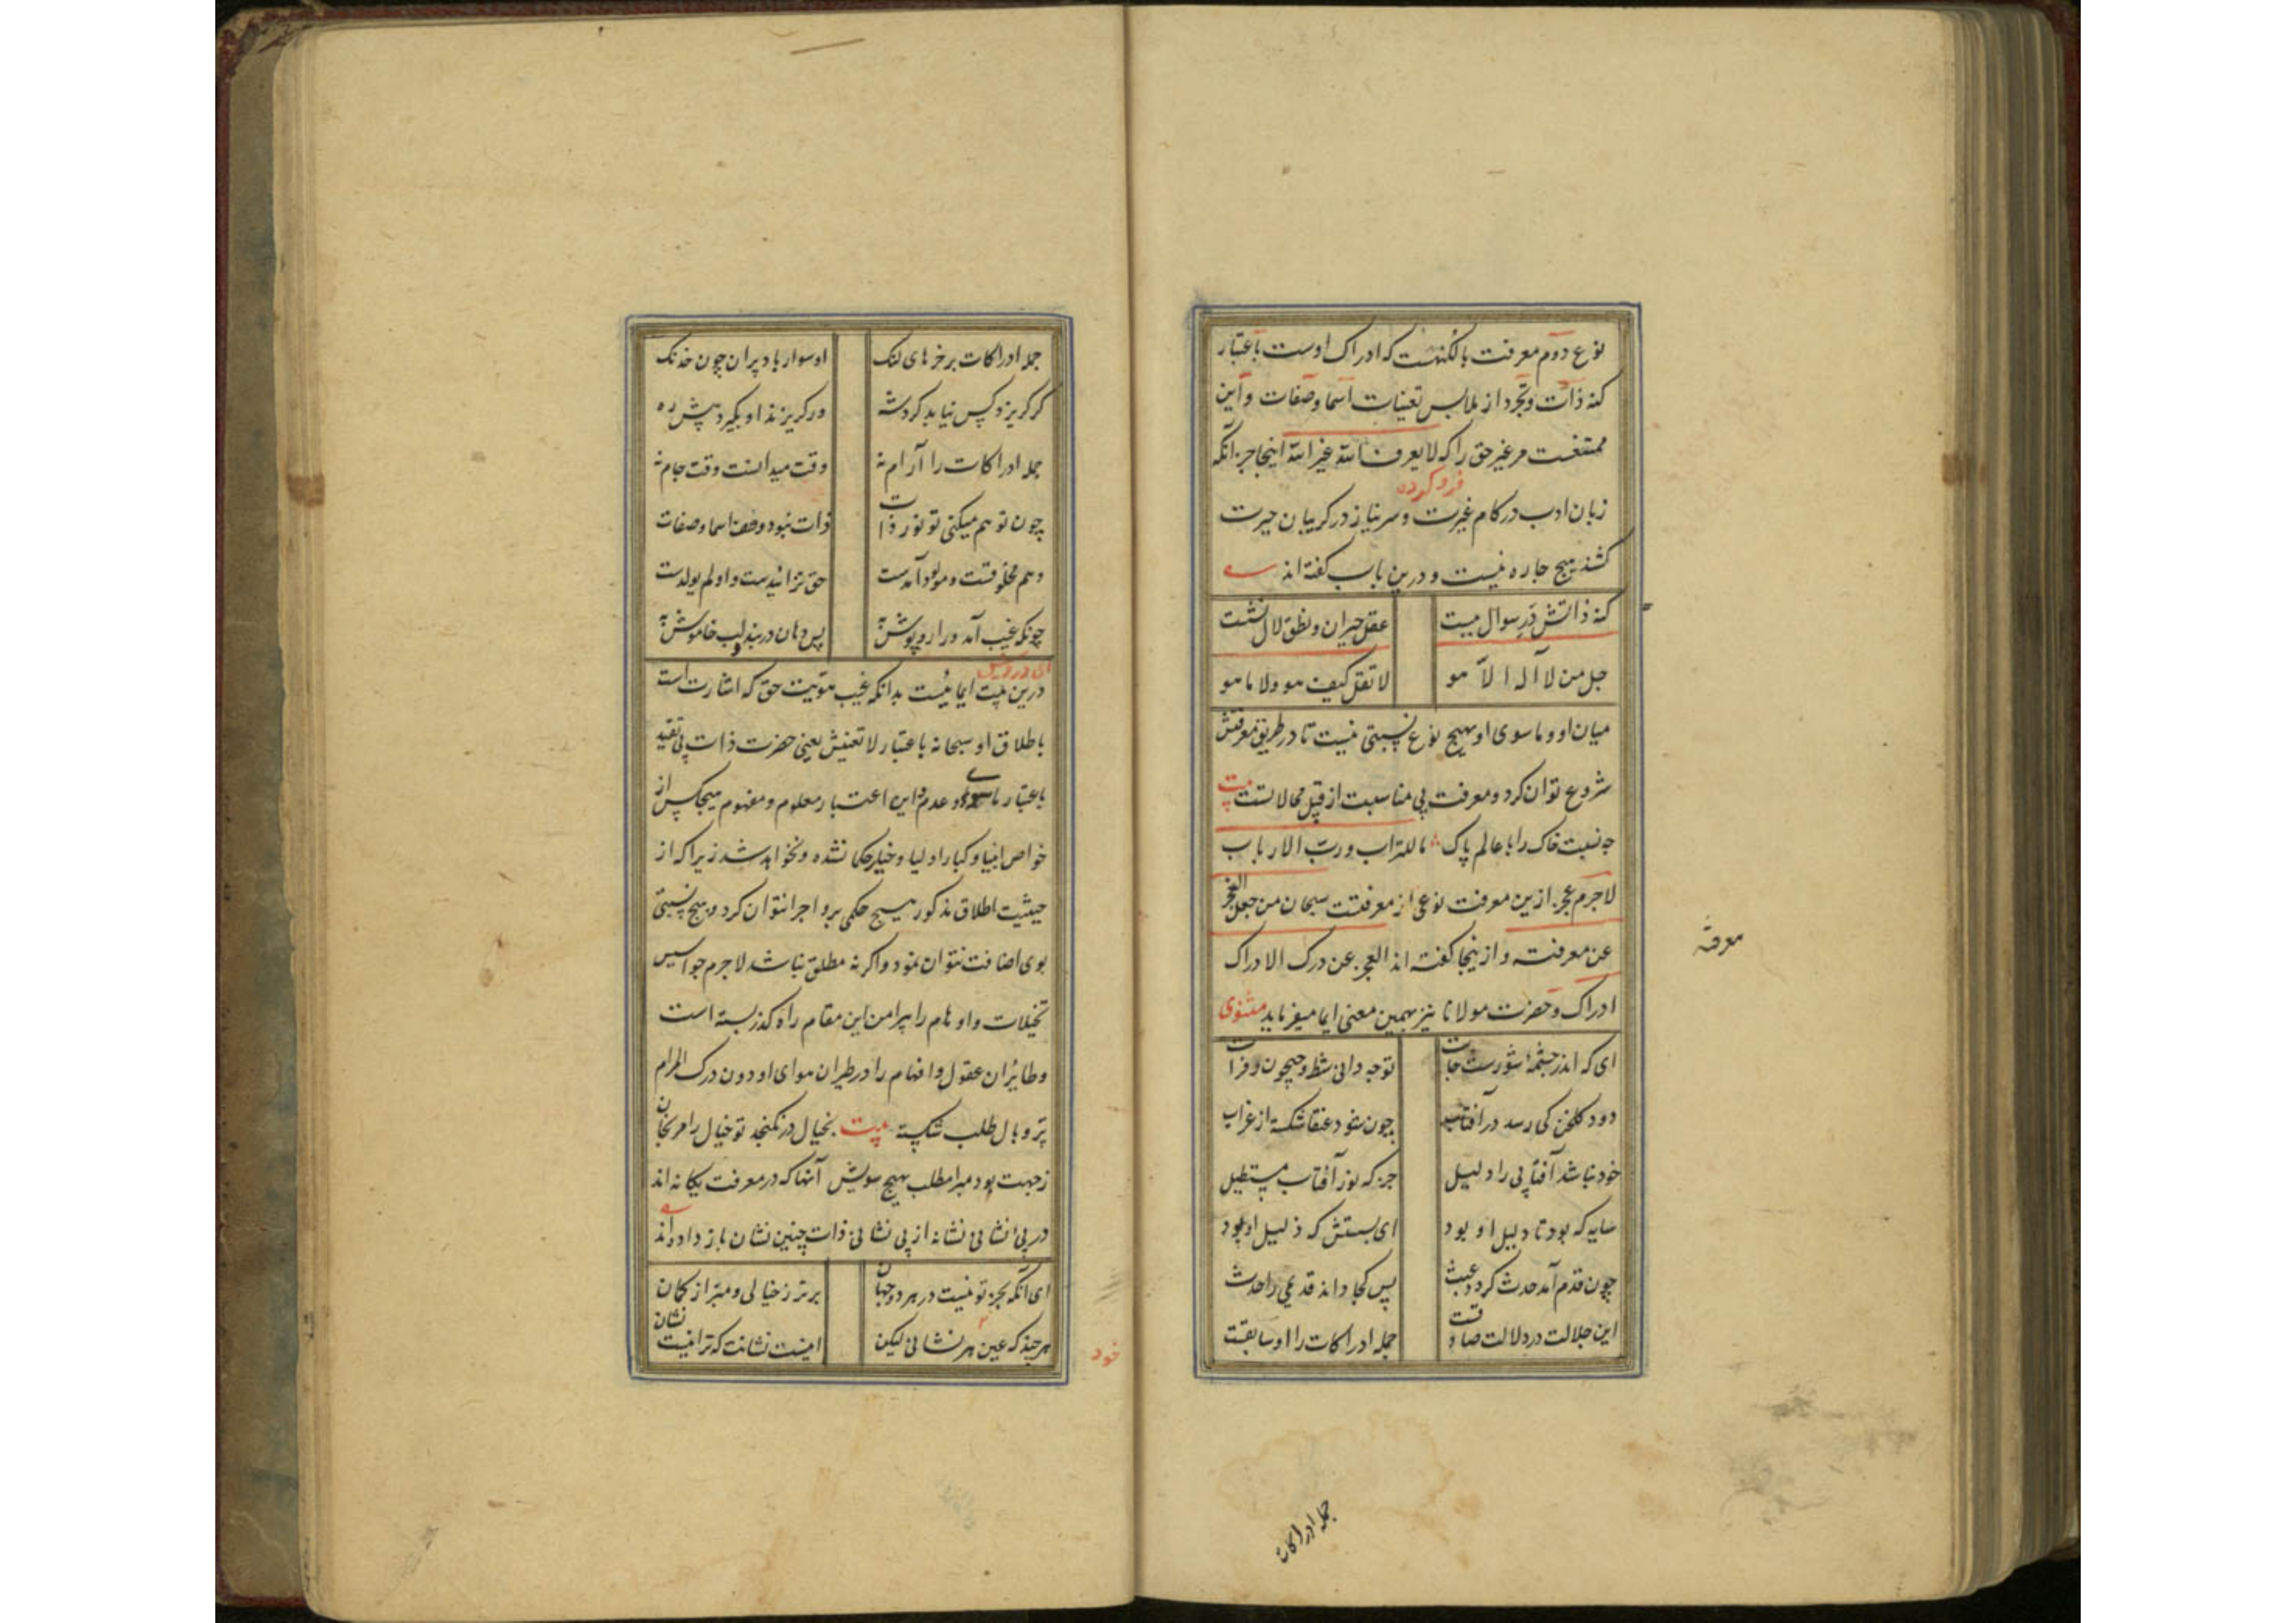 نوع دوم معرفت بالکنهست که ادراک اوست باعتبار
کنه ذات وتجرد از ملابس تعینات اسما وصفات واین
ممتنعست مر غیر حق را که لا یعرف الله غیر الله اینجا جز آنکه
فرو کرده
زبان ادب در کام غیرت وسر نیاز در کریبان حیرت
کشند هیچ جاره نیست ودرین باب کفته اند
کنه ذاتش در سوال ببست
عقل حیران ونطق لال نشست
جل من لا آله الا هو
لا تقل کیف هو ولا ما هو
میان او وما سوی او هیچ نوع نسبتی نیست تا در طریق معرفتش
شروع توان کرد ومعرفت بی مناسبت از قبیل محالاتست بیت
چه نسبت خاک را با عالم پاک ما للتراب ورب الارباب
لاجرم عجز ازین معرفت نوعی از معرفتست سبحان من جعل العجز
عن معرفته وازینجا کفته اند العجز عن درک الادراک
معرفة
ادراک وحضرت مولانا نیز بهمین معنی ایما میفرماید مثنوی
ای که اندر چشمهٔ شورست جات
تو چه دانی شط وجیحون وفرات
دود کلخن کی رسد در آفتاب
چون شود عنقا شکسته از غراب
خود نباشد آفتابی را دلیل
جز که نور آفتاب مستطیل
سایه که بود تا دلیل او بود
ای بستش که ذلیل او بود
چون قدم آمد حدث کردد عبث
پس کجا داند قدیمی را حدث
این جلالت در دلالت صادقست
جمله ادراکات را او سابقست
جمله ادراکات
جمله ادراکات بر خرهای لنک
او سوار باد پران چون خدنک
کر کریزد کس نیابد کرد شه
ور کریزند او بکیرد پیش ره
جمله ادراکات را آرام نه
وقت میدانست وقت جام نه
چون توهم میکنی تو نور ذات
ذات نبود وهم اسما وصفات
وهم مخلوقست ومولود آمدست
حق نزائیدست واو لم یولدست
چونکه غیب آمد ورا روپوش به
پس دهان دربند ولب خاموش به
ای درویش
درین بیت ایمائیست بدانکه غیب هویت حق که اشارت است
باطلاق او سبحانه باعتبار لا تعینش یعنی حضرت ذات بی تقید
باعتبار ماسوی وعدم این اعتبار معلوم ومفهوم هیچکس از
خواص انبیا وکبار اولیا وخیار حکما نشده ونخواهد شد زیرا که از
حیثیت اطلاق مذکور هیچ حکمی برو اجرا نتوان کرد وهیچ نسبتی
بوی اضافت نتوان نمود واکر نه مطلق نباشد لاجرم جواسیس
تخیلات واوهام را پیرامن این مقام راه کذر بسته است
وطایران عقول وافهام را در طیران هوای او دون درک المرام
پر وبال طلب شکسته بیت بخیال در نکنجد تو خیال را مرنجان
ز جهت بود مبرا مطلب بهیچ سویش آنها که در معرفت یکانه اند
در بی نشانی نشانه از بی نشانی ذات چنین نشان باز داده اند
ای آنکه بجز تو نیست در هر دو جهان
برتر ز خیالی ومبرا از کمان
هر چند که عین هر نشانی لیکن
اینست نشانت که ترا نیست نشان
خود